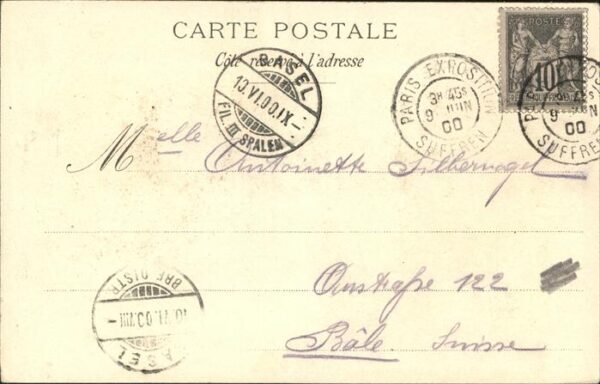 CARTE POSTALE
Côté réservé à l'adresse
POSTE
10
PARIS EXPOSITION
3H 45S
9 JUIN
00
SUFFREN
PARIS
45S
9
00
SUFFREN
BASEL
10.VI.00.IX-
FIL. III SPALEN
Melle Antoinette Silbernagel
122
Bâle. Suisse
BRF. DISTR.
10.VI.00.VIII-
BASEL